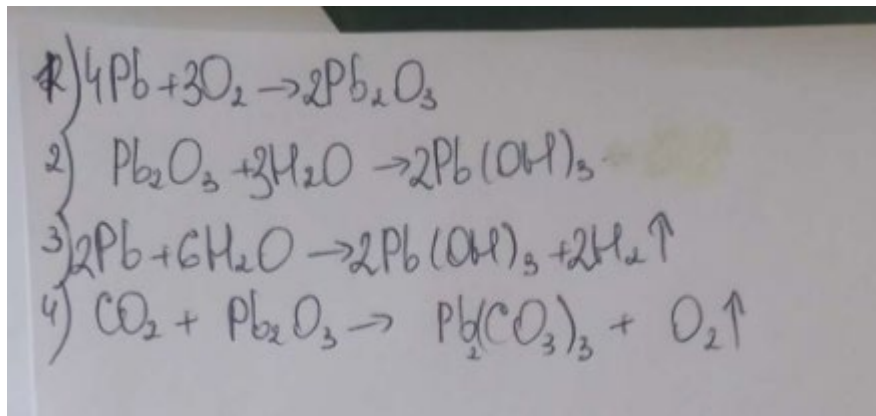 1) 4Pb + 3O₂ → 2Pb₂O₃
2) Pb₂O₃ + 3H₂O → 2Pb(OH)₃
3) 2Pb + 6H₂O → 2Pb(OH)₃ + 2H₂↑
4) CO₂ + Pb₂O₃ → Pb₂(CO₃)₃ + O₂↑